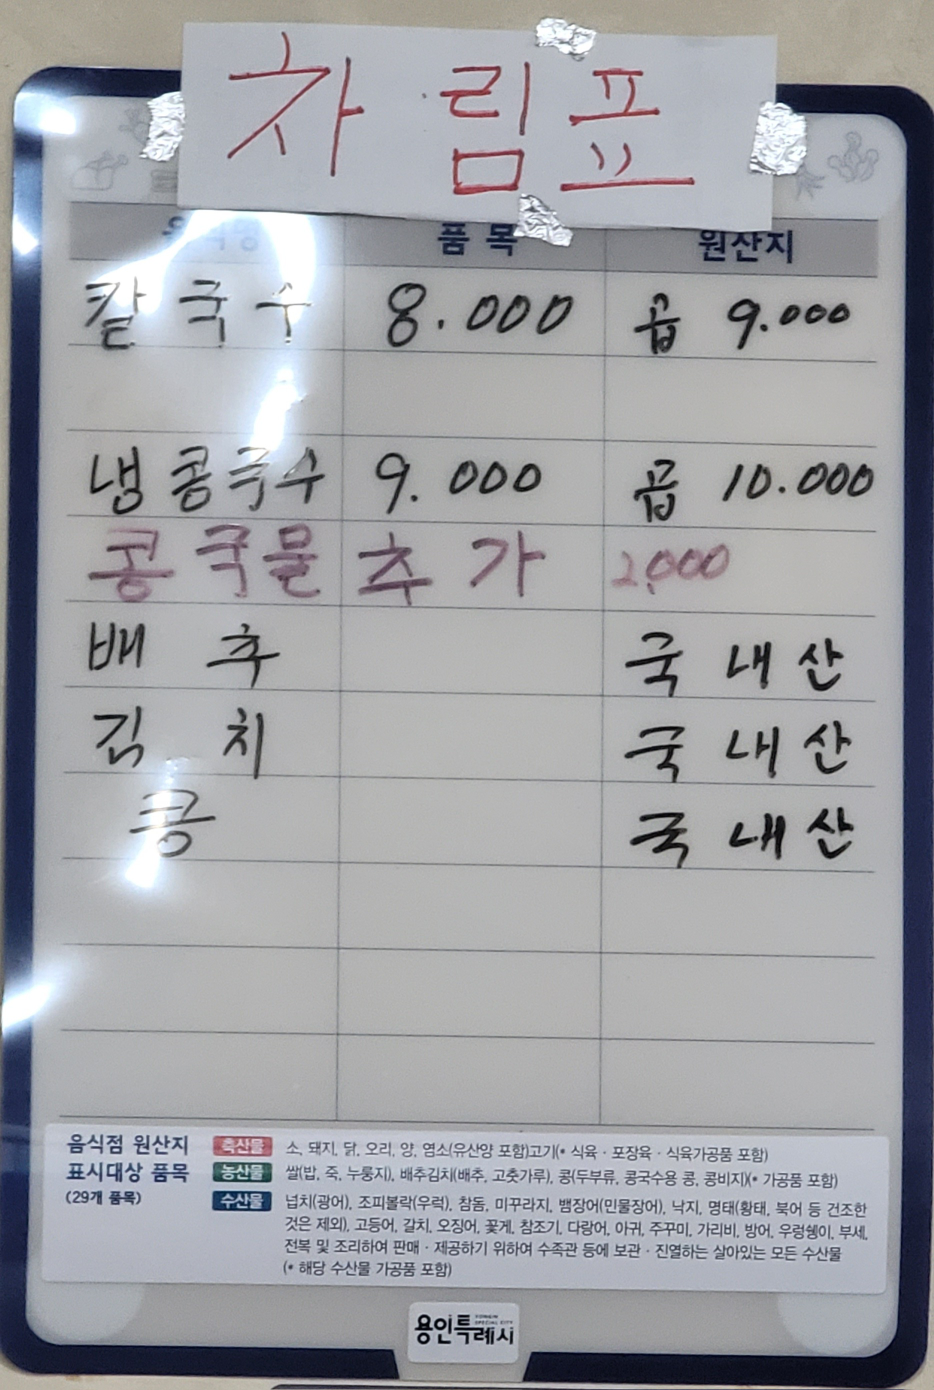 차림표
품목 원산지
칼국수 8.000 곱 9.000
냉콩국수 9.000 곱 10.000
콩국물 추가 2,000
배추 국내산
김치 국내산
콩 국내산
음식점 원산지
표시대상 품목
(29개 품목)
축산물 소, 돼지, 닭, 오리, 양, 염소(유산양 포함)고기(* 식육 · 포장육 · 식육가공품 포함)
농산물 쌀(밥, 죽, 누룽지), 배추김치(배추, 고춧가루), 콩(두부류, 콩국수용 콩, 콩비지)(* 가공품 포함)
수산물 넙치(광어), 조피볼락(우럭), 참돔, 미꾸라지, 뱀장어(민물장어), 낙지, 명태(황태, 북어 등 건조한
것은 제외), 고등어, 갈치, 오징어, 꽃게, 참조기, 다랑어, 아귀, 주꾸미, 가리비, 방어, 우렁쉥이, 부세,
전복 및 조리하여 판매 · 제공하기 위하여 수족관 등에 보관 · 진열하는 살아있는 모든 수산물
(* 해당 수산물 가공품 포함)
YONGIN
SPECIAL CITY
용인특례시